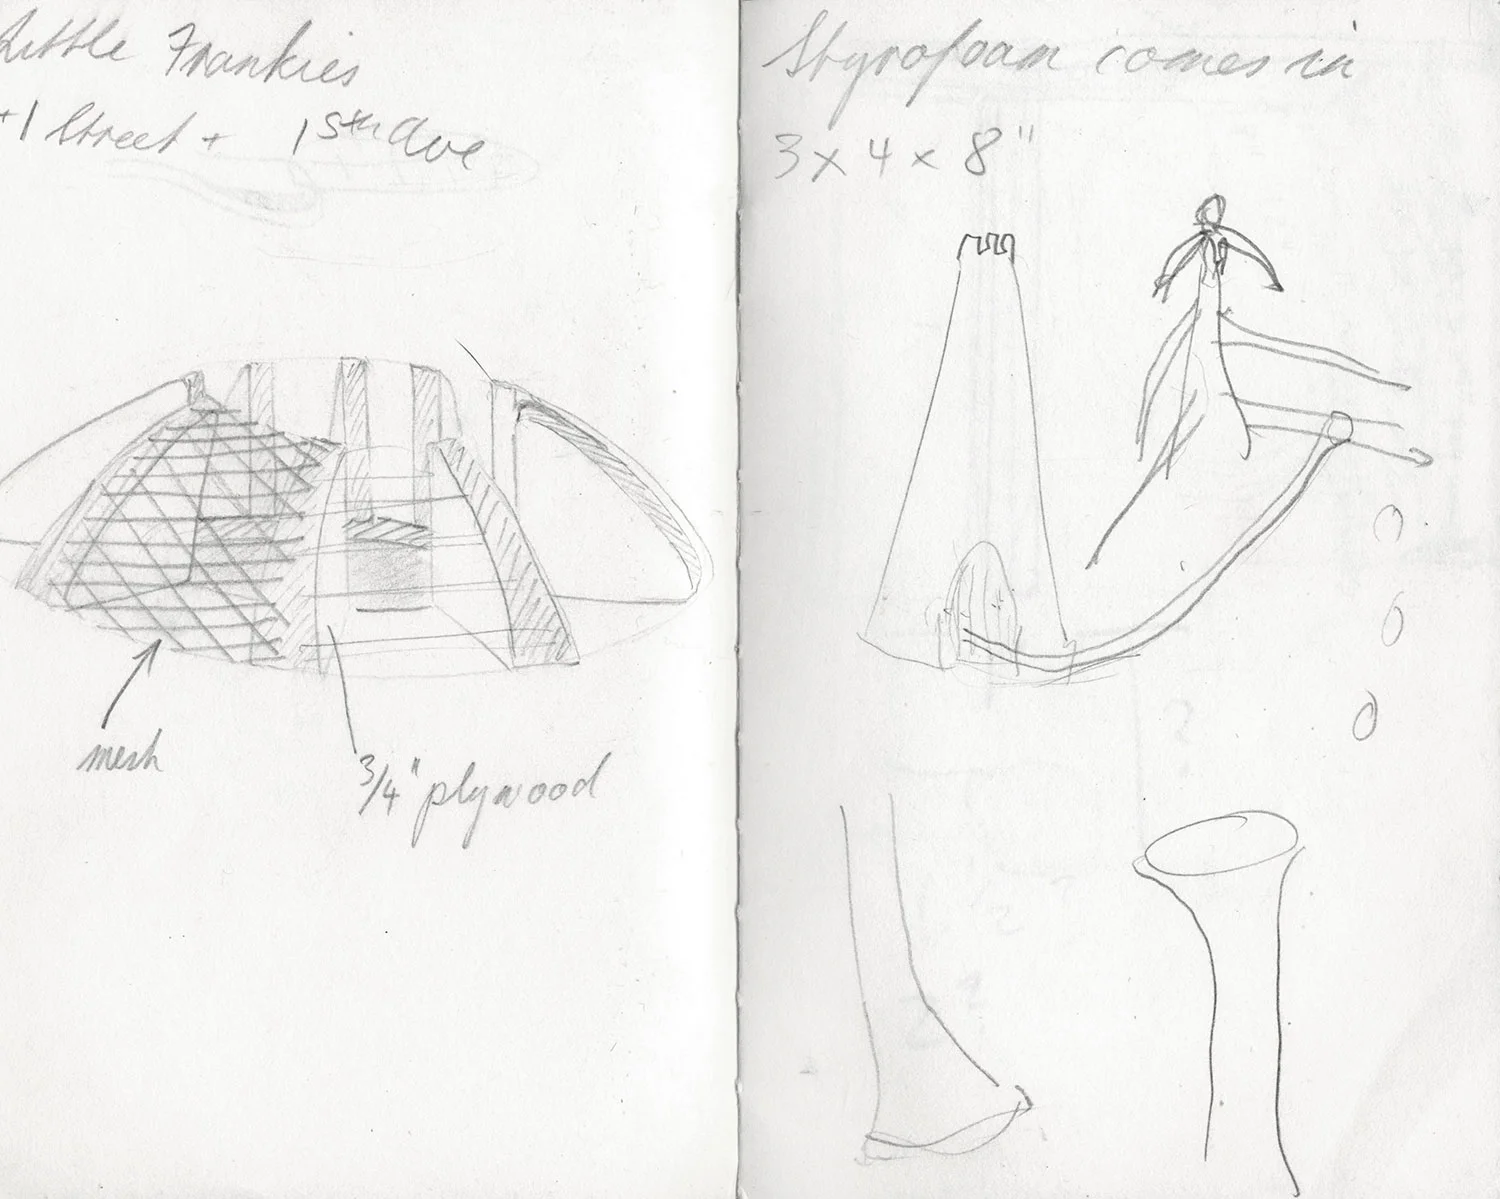 Little Frankies
+1 Street + 1st Ave
mesh
3/4" plywood
Styrofoam comes in
3 x 4 x 8"